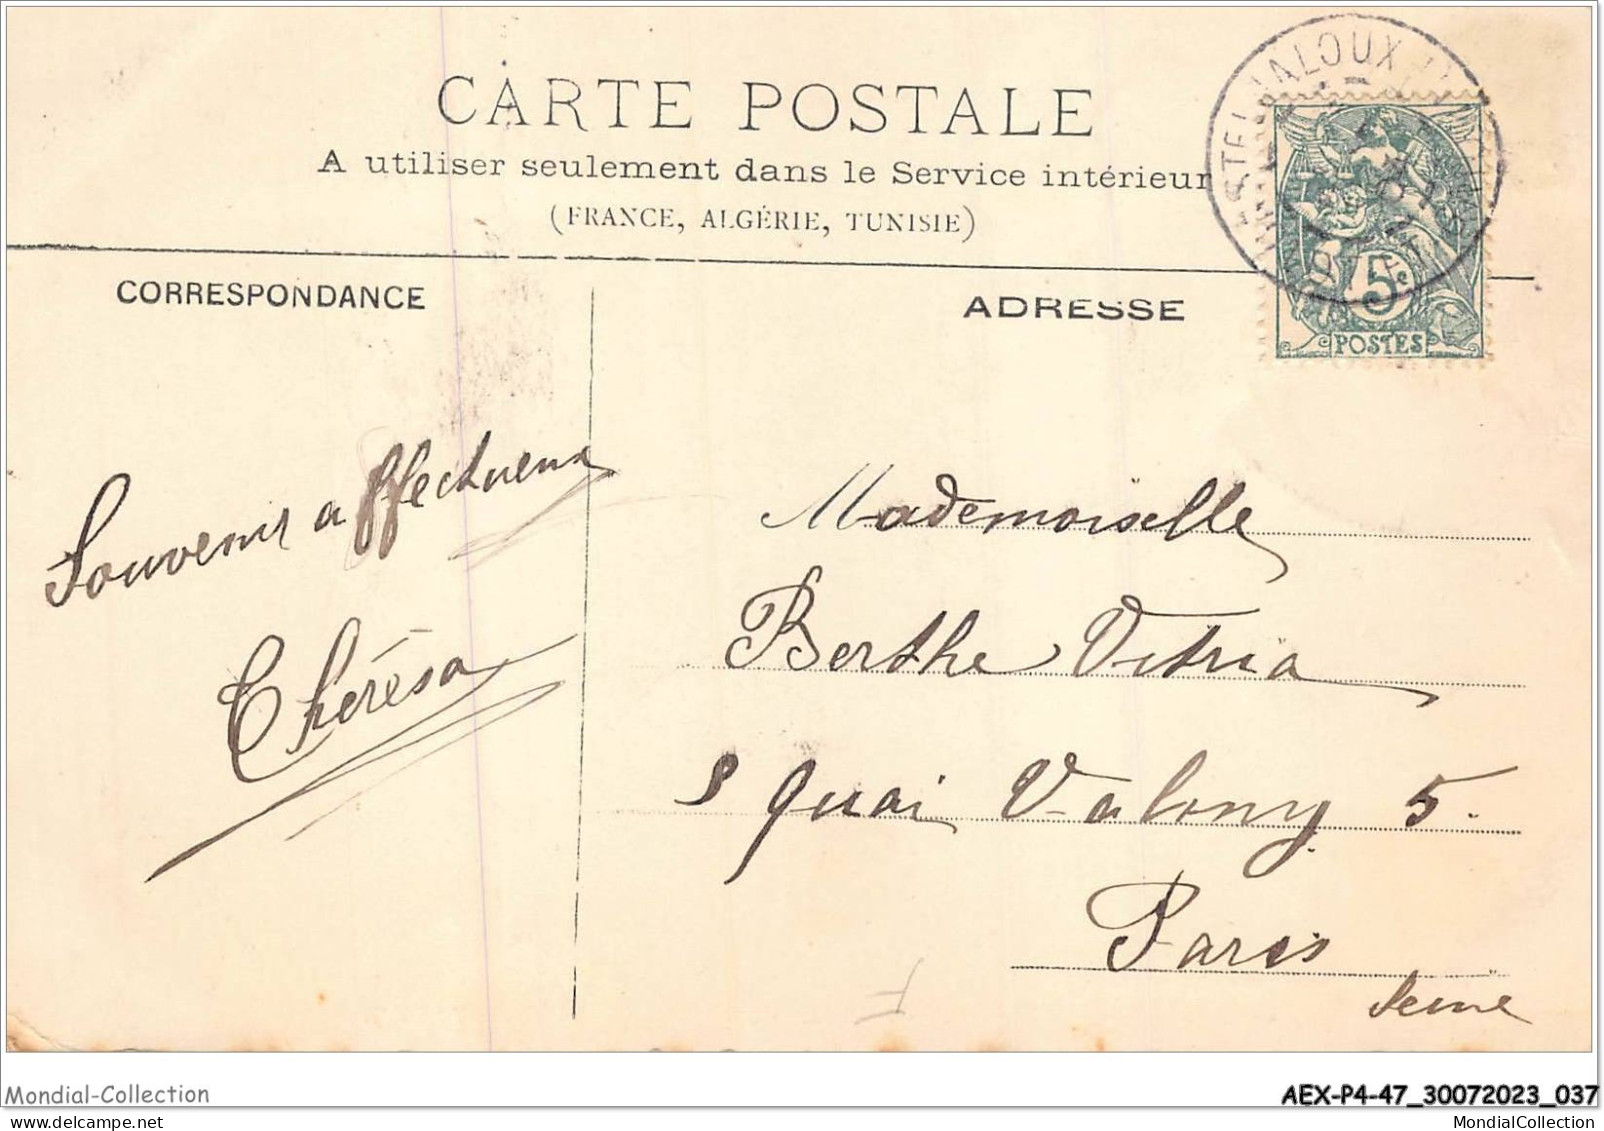 CARTE POSTALE
A utiliser seulement dans le Service intérieur
(FRANCE, ALGÉRIE, TUNISIE)
CORRESPONDANCE
ADRESSE
5c.
POSTES
Souvenir affectueux
Thérésa
Mademoiselle
Berthe Vitria
5 quai Valmy 5.
Paris
Seine
Mondial-Collection
AEX-P4-47_30072023_037
www.delcampe.net
MondialCollection